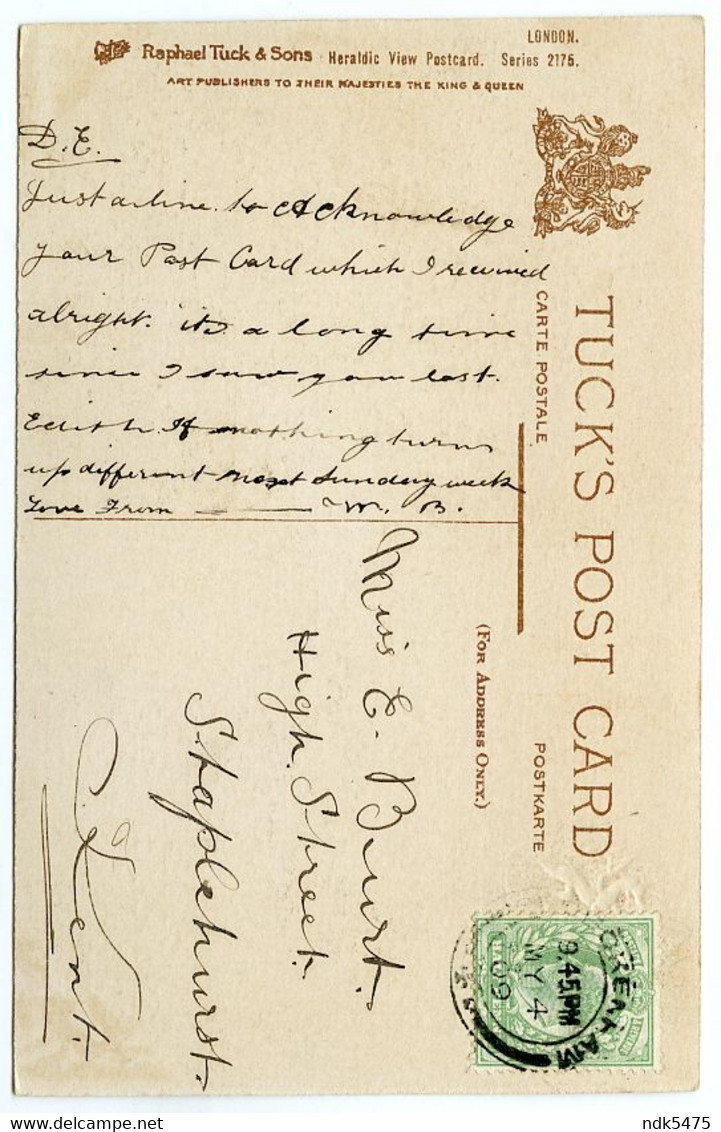 LONDON.
Raphael Tuck & Sons Heraldic View Postcard. Series 2175.
ART PUBLISHERS TO THEIR MAJESTIES THE KING & QUEEN
D.E.
Just a line to Acknowledge
your Post Card which I received
alright. its a long time
since I saw you last.
Edith. If nothing turns
up different next Sunday week
Love From W. B.
TUCK'S POST CARD
CARTE POSTALE
POSTKARTE
(FOR ADDRESS ONLY.)
Miss E. Burt.
High. Street.
Staplehurst.
Kent.
9.45 PM
MY 4
09
ndk5475